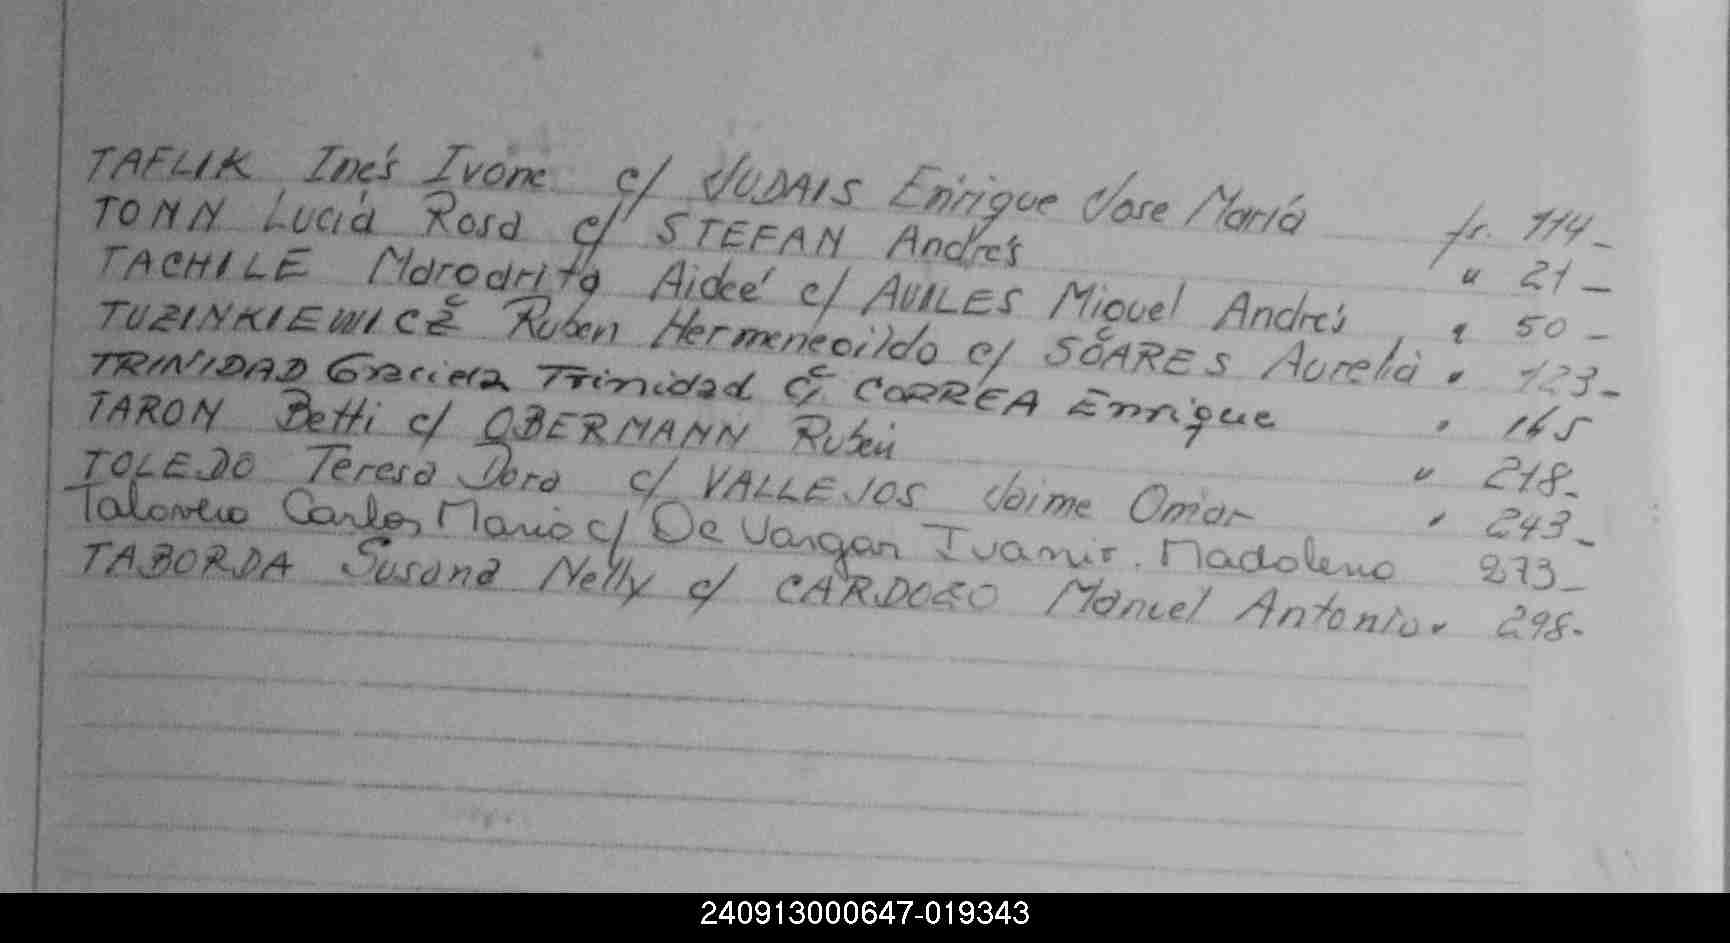 TAFLIK Inés Ivone c/ JUDAIS Enrique Jose María fr. 114-
TONN Lucía Rosa c/ STEFAN Andrés " 21-
TACHILE Margarita Aideé c/ AVILES Miguel Andrés " 50-
TUZINKIEWICZ Ruben Hermenegildo c/ SOARES Aurelia " 123-
TRINIDAD Graciela Trinidad c/ CORREA Enrique " 165
TARON Betti c/ OBERMANN Rubén " 218-
TOLEDO Teresa Dora c/ VALLEJOS Jaime Omar " 243-
Talavera Carlos Mario c/ De Vargas Ivanir. Madalena 273-
TABORDA Susana Nelly c/ CARDOZO Manuel Antonio " 298-
240913000647-019343